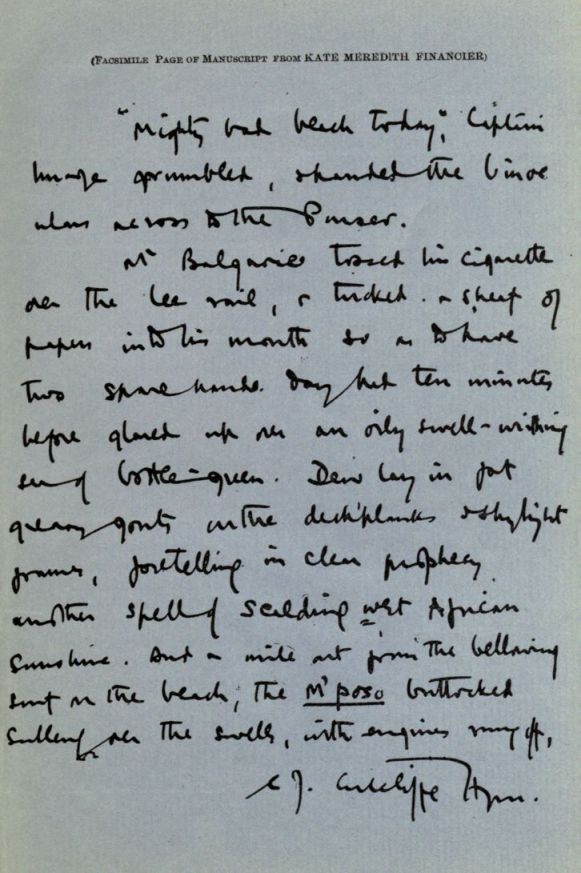 (FACSIMILE PAGE OF MANUSCRIPT FROM KATE MEREDITH FINANCIER)
"Mighty bad beach today", Captain
Image grumbled, & handed the binoc
ulars across to the Purser.
Mr Balgarnie tossed his cigarette
over the lee rail, & tucked a sheaf of
papers into his mouth so as to have
two spare hands. Day had ten minutes
before glared up over an oily swell-writhing
sea of bottle-green. Dew lay in fat
greasy gouts on the deckplanks & skylight
frames, foretelling in clear prophecy
another spell of scalding wet African
sunshine. And a mile out from the bellowing
surf on the beach, the M'poso buttocked
sullenly over the swells, with engines rung off,
C J. Cutcliffe Hyne.